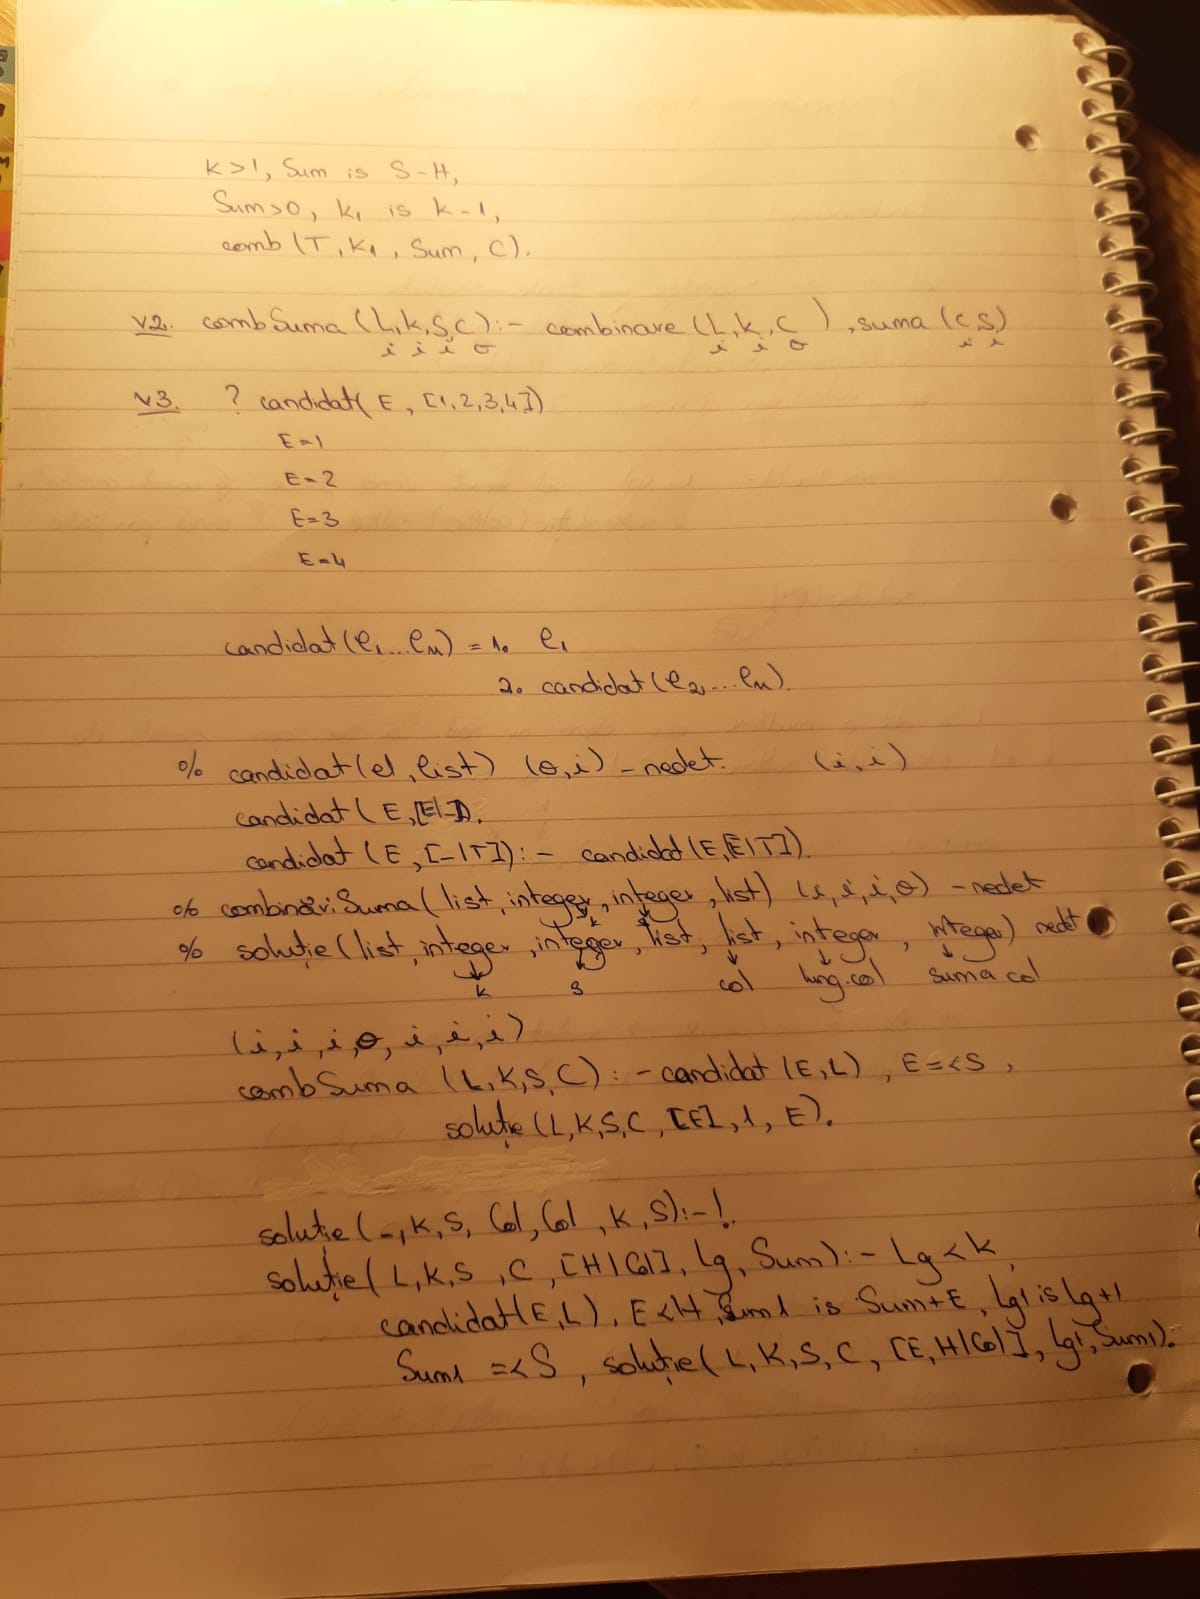 k>1, Sum is S-H,
Sum>0, k1 is k-1,
comb(T, K1, Sum, C).
V2. combSuma (L,k,S,C):- combinare (L,k,C), suma (C,S)
i i i o i i o i i
V3. ? candidat( E, [1,2,3,4])
E=1
E=2
E=3
E=4
candidat(e1...en) = 1. e1
2. candidat(e2,...en).
% candidat(el, list) (o,i) - nedet. (i,i)
candidat( E,[E|_]).
candidat (E,[_|T]):- candidat(E,[E|T]).
% combinări Suma( list, integer, integer, list) (i,i,i,o) - nedet
k s
% soluție(list, integer, integer, list, list, integer, integer) nedet
k s col lung.col suma col
(i,i,i,o,i,i,i)
combSuma (L,K,S,C):- candidat (E,L), E=<S,
soluție(L,K,S,C,[E],1,E).
soluție(_,K,S,Col,Col,K,S):-!.
soluție( L,K,S,C,[H|Col], Lg, Sum):- Lg<K,
candidat(E,L), E<H, Sum1 is Sum+E, Lg1 is Lg+1
Sum1 =<S, soluție( L,K,S,C,[E,H|Col], Lg1, Sum1).